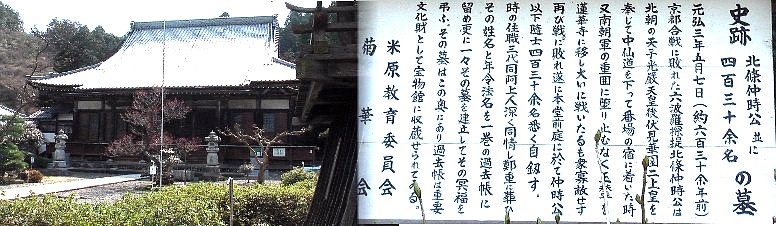 史跡 北條仲時公 並に
四百三十余名 の墓
元弘三年五月七日(約六百三十余年前)
京都合戦に敗れた六波羅探捉北條仲時公は
北朝の天子光厳天皇後伏見華園二上皇を
奉じて中仙道を下って番場の宿に着いた時
又南朝軍の重囲に堕り止むなく
蓮華寺に移し大いに戦いたるも衆寡敵せず
再び戦に敗れ遂に本堂前庭に於て仲時公
以下随士四百三十余名悉く自刎す。
時の住職三代同阿上人深く同情し鄭重に葬ひ
その姓名と年令法名を一巻の過去帳に
留め更に一々その墓を建立してその冥福を
弔ふ。その墓はこの奥にあり過去帳は重要
文化財として宝物館に収蔵せられてゐる。
米原教育委員会
菊華会